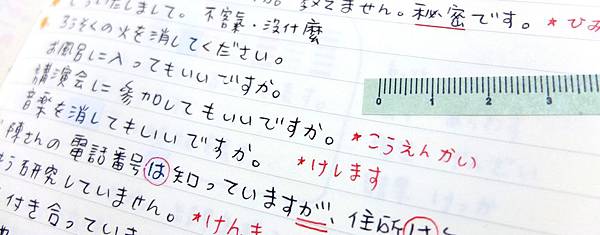 ういたしまして。不客氣・沒什麼
教えません。秘密です。＊ひみ
ろうそくの火を消してください。
お風呂に入ってもいいですか。
講演会に参加してもいいですか。＊こうえんかい
音楽を消してもいいですか。＊けします
陳さんの電話番号は知っていますが、住所は
研究していません。＊けんき
付き合っていま
0 1 2 3